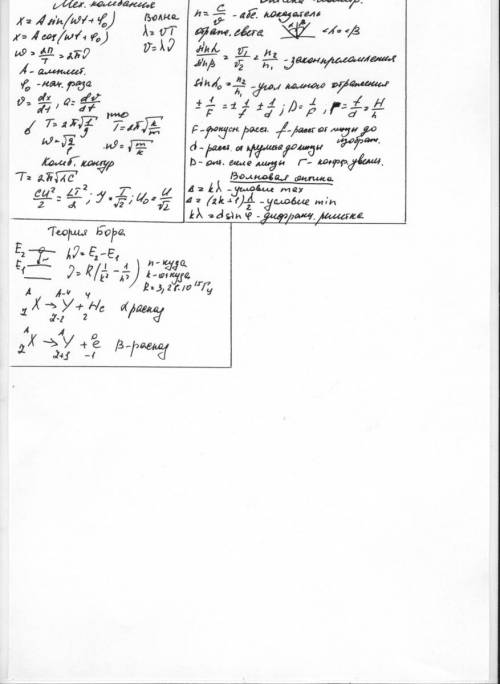 Мех. колебания
x = A sin(ωt + φ₀)
x = A cos(ωt + φ₀)
ω = 2π/T = 2πν
A - амплит.
φ₀ - нач. фаза
v = dx/dt, a = dv/dt
T = 2π√(l/g)
T = 2π√(k/m)
ω = √(g/l)
ω = √(m/k)
Волна
λ = vT
v = λν
Колеб. контур
T = 2π√LC
CU²/2 = LI²/2; I/√2; U/√2
n = c/v - абс. показатель
света
∠α = ∠β
sinα/sinβ = v₁/v₂ = n₂/n₁ - закон преломления
sinα₀ = n₂/n₁ - угол полного отражения
± 1/F = ± 1/f ± 1/d; D = 1/F; Г = f/d = H/h
F - фокусн. расст. f - расст. от линзы до
изображ.
d - расст. от предмета до линзы
D - опт. сила линзы Г - коэфф. увелич.
Волновая оптика
Δ = kλ - условие max
Δ = (2k+1) λ/2 - условие min
kλ = d sin φ - дифракц. решетка
Теория Бора
E₂
E₁
hν = E₂ - E₁
ν = R(1/k² - 1/n²)
n - куда
k - откуда
R = 3,28·10¹⁵ Гц
ᴬ_Z X → ᴬ⁻⁴_Z-2 Y + ⁴₂He α распад
ᴬ_Z X → ᴬ_Z+1 Y + ⁰₋₁e β - распад